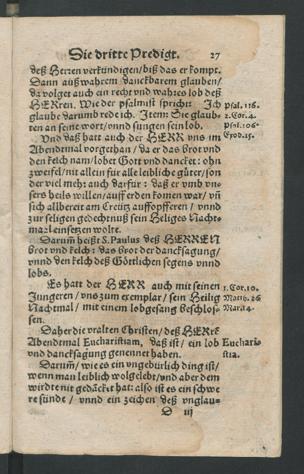 Die dritte Predigt. 27
deß Herren verkündigen/biß das er kompt.
Dann auß wahrem danckbarem glauben/
da volget auch ein recht vnd wahres lob deß
HERren. Wie der psalmist spricht: Ich psal. 116.
glaube darumb rede ich. Item: Sie glaub- 2. Cor. 4.
ten an seine wort/vnnd sungen sein lob. psal. 106.
Vnd daß hatt auch der HERR vns im Exod. 15.
Abendtmal vorgethan/da er das brot vnd
den kelch nam/lobet Gott vnd dancket: ohn
zweifel/nit allein für alle leibliche güter/son
der viel meh: auch darfür: daß er vmb vn-
sers heils willen/auff erden komen war/vñ
sich allbereit am Creütz auffopfferen/vnnd
zur seligen gedechtnuß sein Heliges Nacht-
mal einsetzen wolte.
Darum̃ heißt S. Paulus deß HERREN
brot vnd kelch: das brot der dancksagung/
vnnd den kelch deß Göttlichen segens vnnd
lobs.
Es hatt der HERR auch mit seinen 1. Cor. 10.
Jungeren/vns zum exemplar/sein Heilig Matth. 26
Nachtmal/mit einem lobgesang beschlos- Mar. 14.
sen.
Daher die vralten Christen/deß HERrẽ
Abendtmal Eucharistiam, daß ist/ein lob Eucharis-
vnd dancksagung genennet haben. stia.
Darum̃/wie es ein vngebürlich ding ist/
wenn man leiblich wol gelebt/vnd aber dem
wirdt e nit gedäcket hat: also ist es ein schwe
re sünde/vnnd ein zeichen deß vnglau-
D iij